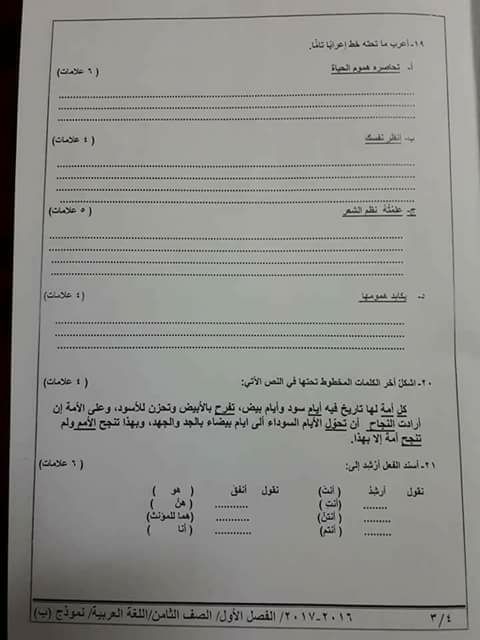 ١٩- أعرب ما تحته خط إعرابًا تامًّا.
أ- تحاصره هموم الحياة (٦ علامات)
ب- انظر نفسك (٤ علامات)
ج- علمتُهُ نظم الشعر (٥ علامات)
د- يكابد همومها (٤ علامات)
٢٠- اشكل آخر الكلمات المخطوط تحتها في النص الآتي: (٤ علامات)
كل أمة لها تاريخ فيه أيام سود وأيام بيض، تفرح بالأبيض وتحزن للأسود، وعلى الأمة إن
أرادت النجاح أن تحوّل الأيام السوداء ألى ايام بيضاء بالجد والجهد، وبهذا تنجح الأمم ولم
تنجح أمة إلا بهذا.
٢١- أسند الفعل أرْشِد إلى: (٦ علامات)
نقول أرشِدْ (أنتَ) نقول أنفقَ (هو)
........ (أنتِ) ........... (هنّ)
......... (أنتنّ) ........... (هما للمؤنث)
......... (أنتم) ........... (أنا)
٣/٤ ٢٠١٦-٢٠١٧/ الفصل الأول/ الصف الثامن/اللغة العربية/ نموذج (ب)